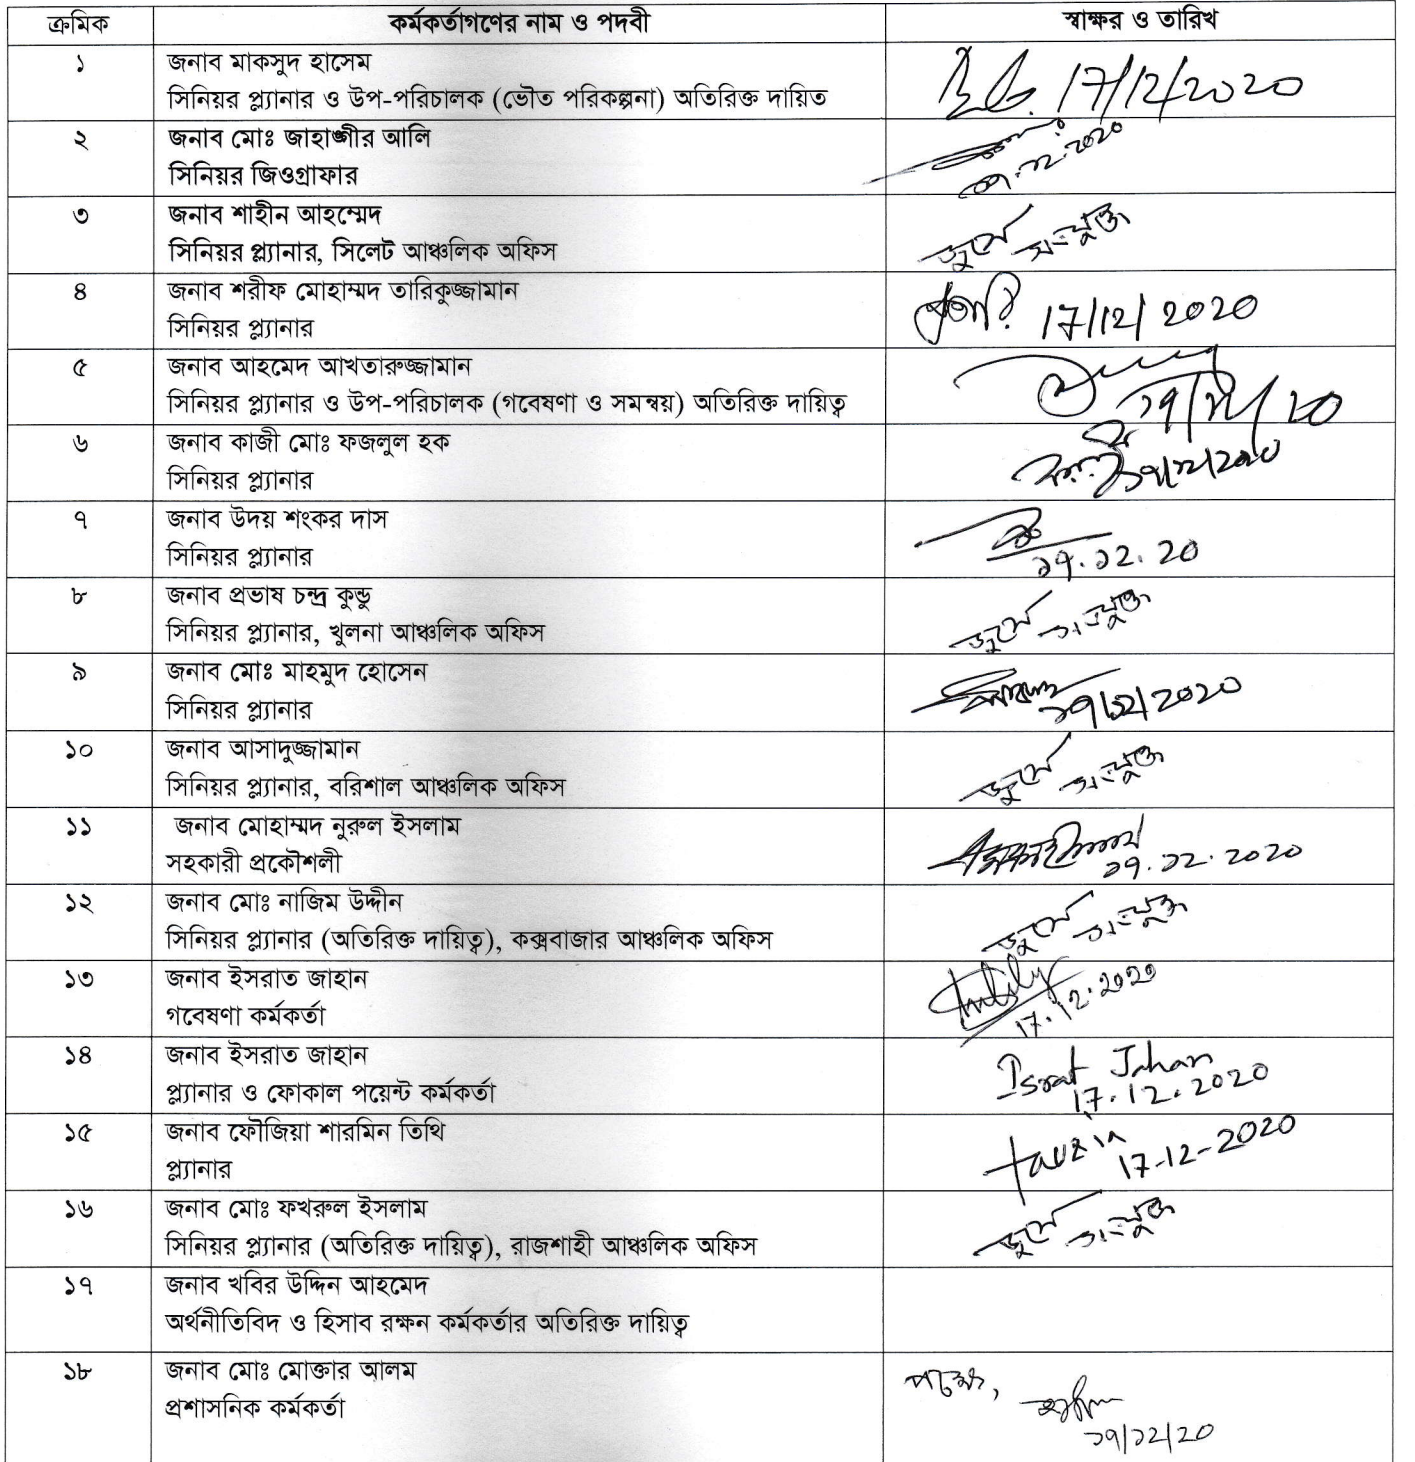 ক্রমিক কর্মকর্তাগণের নাম ও পদবী স্বাক্ষর ও তারিখ
১ জনাব মাকসুদ হাসেম
সিনিয়র প্ল্যানার ও উপ-পরিচালক (ভৌত পরিকল্পনা) অতিরিক্ত দায়িত 17/12/2020
২ জনাব মোঃ জাহাঙ্গীর আলি
সিনিয়র জিওগ্রাফার
৩ জনাব শাহীন আহম্মেদ
সিনিয়র প্ল্যানার, সিলেট আঞ্চলিক অফিস জুমে সংযুক্ত
৪ জনাব শরীফ মোহাম্মদ তারিকুজ্জামান
সিনিয়র প্ল্যানার 17/12/2020
৫ জনাব আহমেদ আখতারুজ্জামান
সিনিয়র প্ল্যানার ও উপ-পরিচালক (গবেষণা ও সমন্বয়) অতিরিক্ত দায়িত্ব ১৭/১২/২০
৬ জনাব কাজী মোঃ ফজলুল হক
সিনিয়র প্ল্যানার ১৭/১২/২০২০
৭ জনাব উদয় শংকর দাস
সিনিয়র প্ল্যানার ১৭.১২.২০
৮ জনাব প্রভাষ চন্দ্র কুন্ডু
সিনিয়র প্ল্যানার, খুলনা আঞ্চলিক অফিস জুমে সংযুক্ত
৯ জনাব মোঃ মাহমুদ হোসেন
সিনিয়র প্ল্যানার ১৭/১২/২০২০
১০ জনাব আসাদুজ্জামান
সিনিয়র প্ল্যানার, বরিশাল আঞ্চলিক অফিস জুমে সংযুক্ত
১১ জনাব মোহাম্মদ নুরুল ইসলাম
সহকারী প্রকৌশলী ১৭.১২.২০২০
১২ জনাব মোঃ নাজিম উদ্দীন
সিনিয়র প্ল্যানার (অতিরিক্ত দায়িত্ব), কক্সবাজার আঞ্চলিক অফিস জুমে সংযুক্ত
১৩ জনাব ইসরাত জাহান
গবেষণা কর্মকর্তা 17.12.2020
১৪ জনাব ইসরাত জাহান Israt Jahan
প্ল্যানার ও ফোকাল পয়েন্ট কর্মকর্তা 17.12.2020
১৫ জনাব ফৌজিয়া শারমিন তিথি fauzia
প্ল্যানার 17-12-2020
১৬ জনাব মোঃ ফখরুল ইসলাম
সিনিয়র প্ল্যানার (অতিরিক্ত দায়িত্ব), রাজশাহী আঞ্চলিক অফিস জুমে সংযুক্ত
১৭ জনাব খবির উদ্দিন আহমেদ
অর্থনীতিবিদ ও হিসাব রক্ষন কর্মকর্তার অতিরিক্ত দায়িত্ব
১৮ জনাব মোঃ মোক্তার আলম পক্ষে,
প্রশাসনিক কর্মকর্তা ১৭/১২/২০